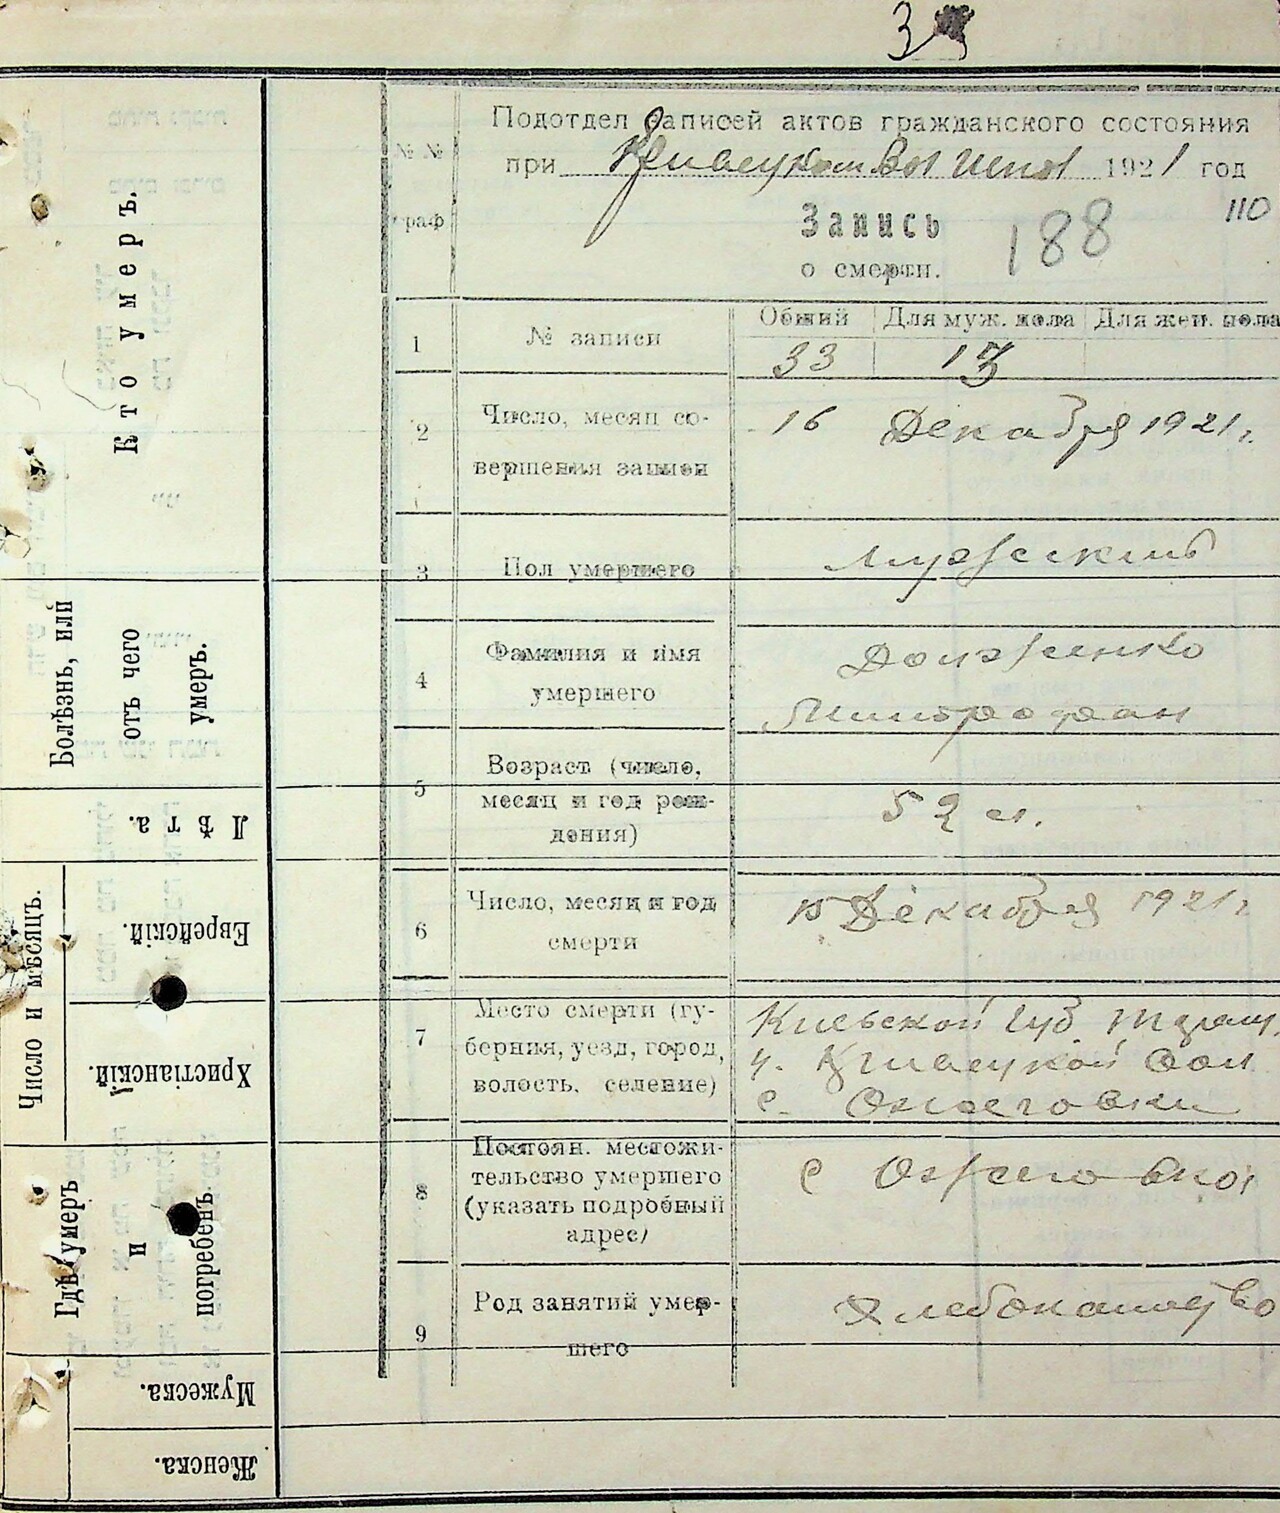 3
Подотдел записей актов гражданского состояния
при 1921 год
110
№№ граф
Запись
188
о смерти.
1 № записи
Общий Для муж. пола Для жен. пола
33 13
2 Число, месяц со-
вершения записи
16 Декабря 1921 г.
3 Пол умершего
Мужский
4 Фамилия и имя
умершего
Долженко
Митрофан
5 Возраст (число,
месяц и год рож-
дения)
52 л.
6 Число, месяц и год
смерти
15 Декабря 1921 г
7 Место смерти (гу-
берния, уезд, город,
волость, селение)
Киевской Губ
у.
с.
8 Постоян. местожи-
тельство умершего
(указать подробный
адрес)
с
9 Род занятий умер-
шего
Хлебопашество
Кто умеръ.
Болѣзнь, или
отъ чего
умеръ.
Лѣта.
Число и мѣсяцъ.
Еврейскій.
Христіанскій.
Гдѣ умеръ
и
погребенъ.
Мужеска.
Женска.